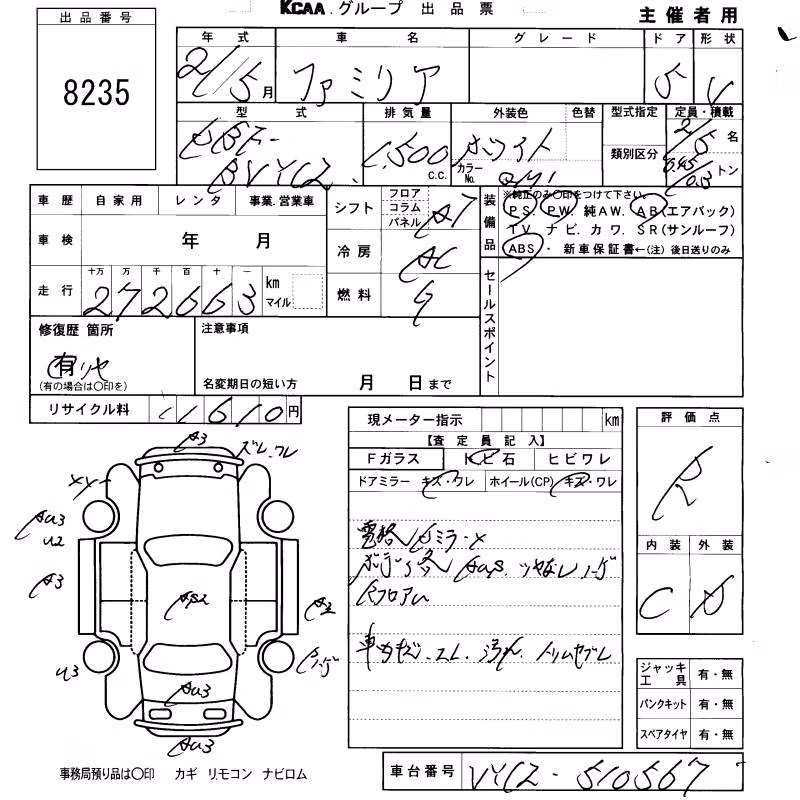 KCAA グループ 出 品 票
主催者用
出品番号
8235
年 式
車 名
グ レ ー ド
ド ア
形 状
21/5月
ファミリア
5
V
型 式
排 気 量
外装色
色替
型式指定
定員・積載
DBF-
BVYCZ
1,500 c.c.
ホワイト
カラーNo.
QM1
類別区分
2/5 名
トン
車 歴
自 家 用
レ ン タ
事業.営業車
シフト
フロア
コラム
パネル
AT
装備品
※純正のみ〇印をつけて下さい。
PS. PW. 純AW. AB(エアバック)
TV ナビ. カワ. SR(サンルーフ)
ABS ・ 新車保証書←(注) 後日送りのみ
車 検
年 月
冷 房
AC
走 行
十万 万 千 百 十 一
272663
km
マイル
燃 料
G
セールスポイント
修復歴 箇所
有
(有の場合は〇印を)
注意事項
名変期日の短い方 月 日まで
リサイクル料
11610円
現メーター指示 km
評 価 点
【査 定 員 記 入】
R
Fガラス
トビ石
ヒビワレ
ドアミラー キズ・ワレ
ホイール(CP) キズ・ワレ
内 装
外 装
C
D
A3
ズレ、ワレ
XX-
AU3
U2
A3
A2
U3
AU3
AU3
Rフロア
ジャッキ
工 具
有・無
パンクキット
有・無
スペアタイヤ
有・無
事務局預り品は〇印 カギ リモコン ナビロム
車台番号
VYCZ-510567